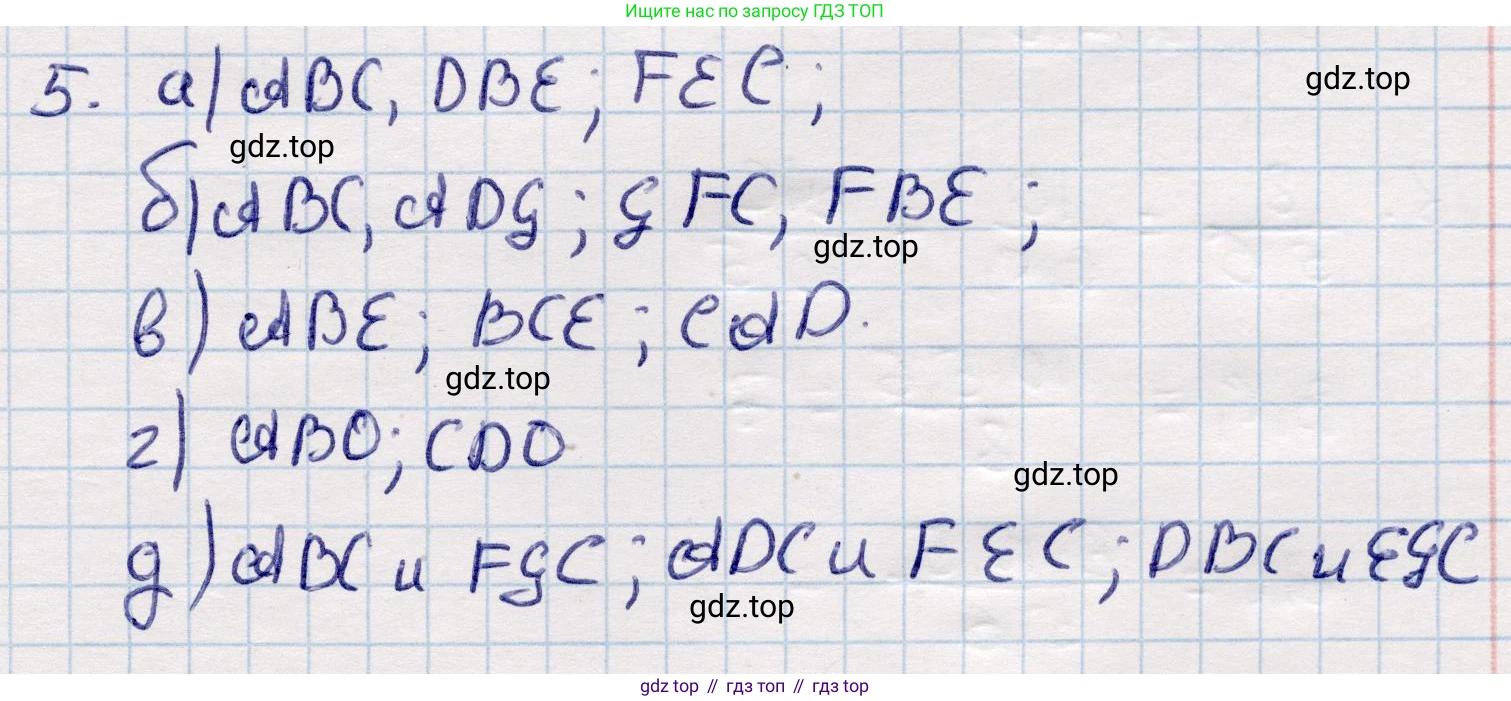 Ищите нас по запросу ГДЗ ТОП
5. а) ABC, DBE; FEC;
gdz.top
gdz.top
б) ABC, ADG; GFC, FBE;
gdz.top
в) ABE; BCE; CAD.
gdz.top
г) ABO; CDO
gdz.top
д) ABC и FGC; ADC и FEC; DBC и EGC
gdz.top
gdz top // гдз топ // гдз top